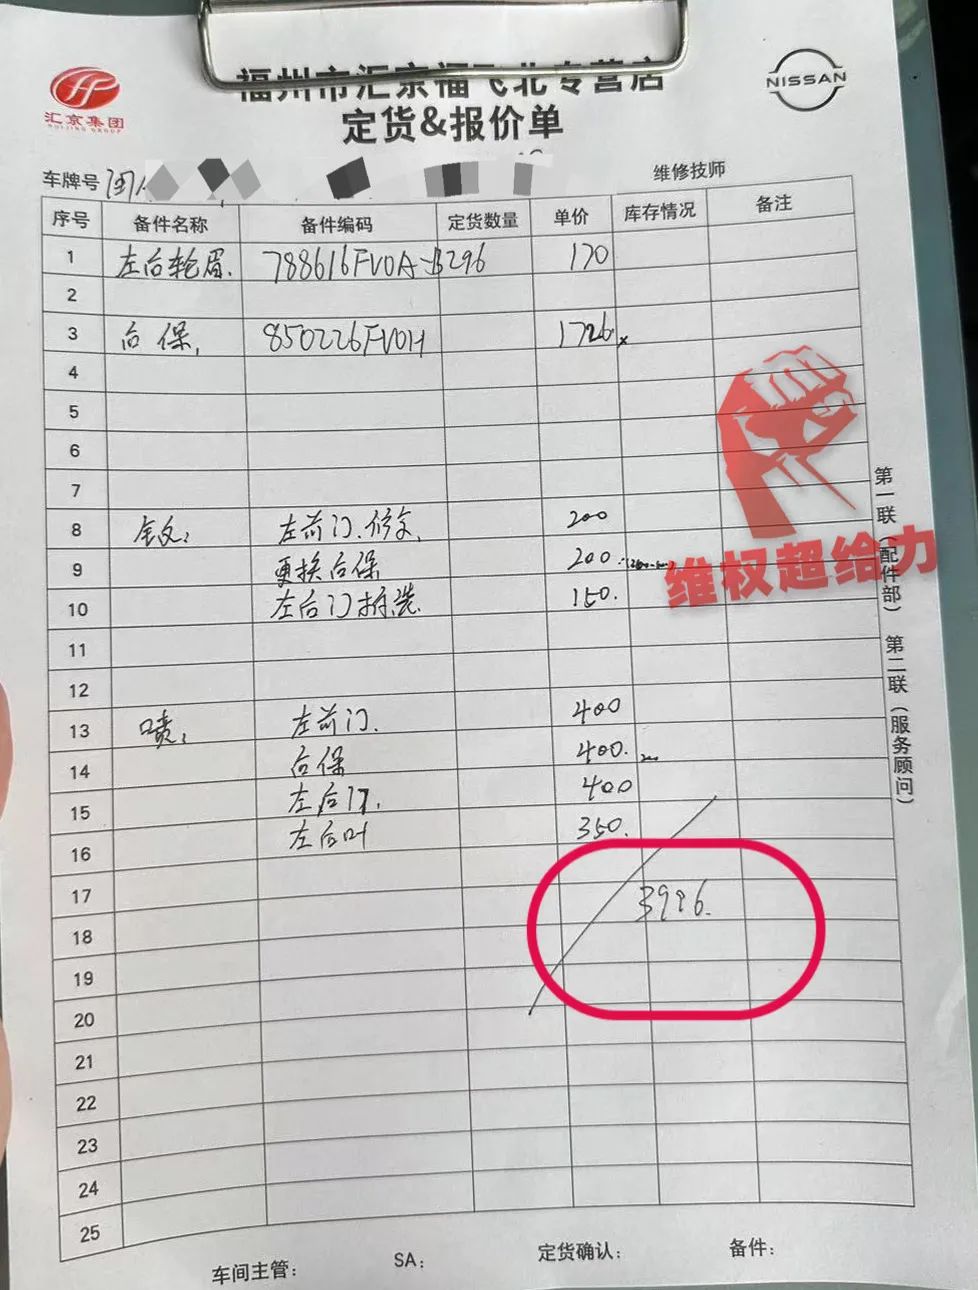 汇京集团
HUIJING GROUP
福州市汇京福飞北专营店
NISSAN
定货&报价单
车牌号 闽A
维修技师
序号 备件名称 备件编码 定货数量 单价 库存情况 备注
1 左后轮眉. 788616FV0A-B296 170
2
3 后保, 850226FV0H 1726
4
5
6
7
8 钣金: 左前门.修复, 200
9 更换后保 200.
10 左后门拆装. 150.
11
12
13 喷: 左前门. 400
14 后保 400.
15 左后门. 400
16 左后叶 350.
17 3996.
18
19
20
21
22
23
24
25
第一联(配件部) 第二联(服务顾问)
维权超给力
车间主管: SA: 定货确认: 备件: